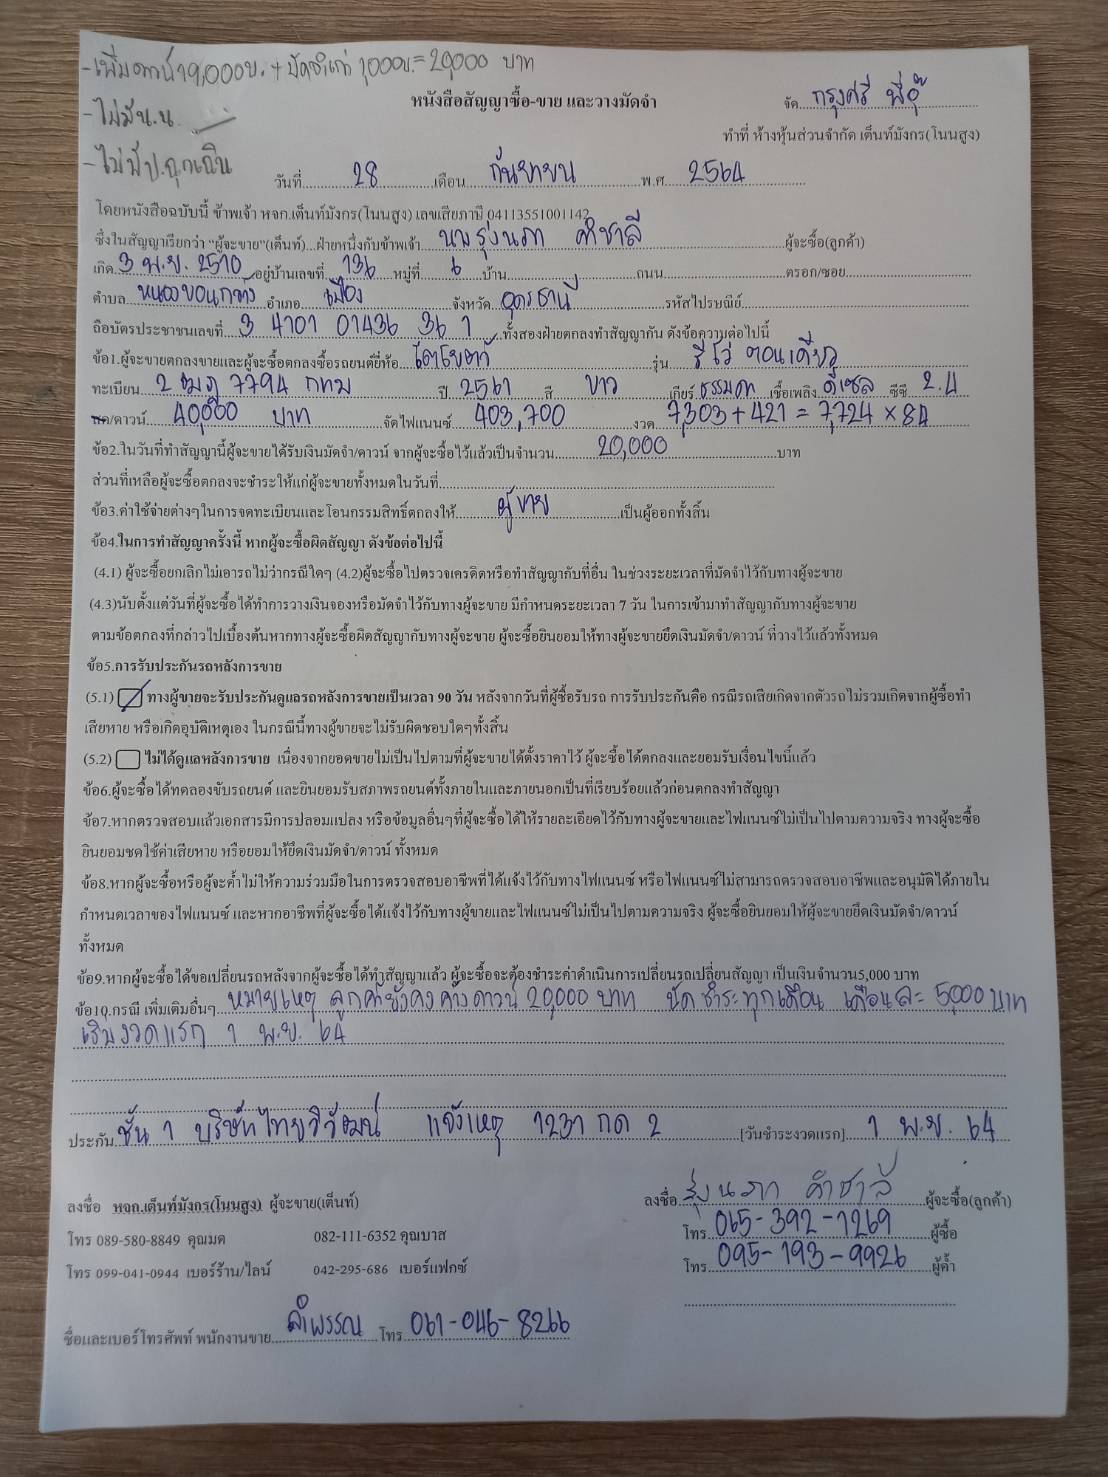 -เพิ่มดาวน์ 19,000บ. + มัดจำเก่า 1,000บ.=20,000 บาท
หนังสือสัญญาซื้อ-ขาย และวางมัดจำ
จัด กรุงศรี พี่อุ๊
-ไม่มีน.น.
ทำที่ ห้างหุ้นส่วนจำกัด เต็นท์มังกร(โนนสูง)
-ไม่มีป.ฉุกเฉิน
วันที่ 28 เดือน กันยายน พ.ศ 2564
โดยหนังสือฉบับนี้ ข้าพเจ้า หจก.เต็นท์มังกร(โนนสูง) เลขเสียภาษี 04113551001142
ซึ่งในสัญญาเรียกว่า "ผู้จะขาย"(เต็นท์)...ฝ่ายหนึ่งกับข้าพเจ้า นางรุ่งนภา คำชาลี ผู้จะซื้อ(ลูกค้า)
เกิด 3 พ.ย. 2510 อยู่บ้านเลขที่ 136 หมู่ที่ 6 บ้าน ถนน ตรอก/ซอย
ตำบล หนองขอนกว้าง อำเภอ เมือง จังหวัด อุดรธานี รหัสไปรษณีย์
ถือบัตรประชาชนเลขที่ 3 4101 01436 36 1 ทั้งสองฝ่ายตกลงทำสัญญากัน ดังข้อความต่อไปนี้
ข้อ1.ผู้จะขายตกลงขายและผู้จะซื้อตกลงซื้อรถยนต์ยี่ห้อ โตโยต้า รุ่น รีโว่ ตอนเดียว
ทะเบียน 2 ฒฎ 7794 กทม ปี 2561 สี ขาว เกียร์ ธรรมดา เชื้อเพลิง ดีเซล ซีซี 2.4
สด/ดาวน์ 40,000 บาท จัดไฟแนนซ์ 403,700 งวด 7,303+421 = 7,724 × 84
ข้อ2.ในวันที่ทำสัญญานี้ผู้จะขายได้รับเงินมัดจำ/ดาวน์ จากผู้จะซื้อไว้แล้วเป็นจำนวน 20,000 บาท
ส่วนที่เหลือผู้จะซื้อตกลงจะชำระให้แก่ผู้จะขายทั้งหมดในวันที่
ข้อ3.ค่าใช้จ่ายต่างๆในการจดทะเบียนและโอนกรรมสิทธิ์ตกลงให้ ผู้ขาย เป็นผู้ออกทั้งสิ้น
ข้อ4.ในการทำสัญญาครั้งนี้ หากผู้จะซื้อผิดสัญญา ดังข้อต่อไปนี้
(4.1) ผู้จะซื้อยกเลิกไม่เอารถไม่ว่ากรณีใดๆ (4.2)ผู้จะซื้อไปตรวจเครดิตหรือทำสัญญากับที่อื่น ในช่วงระยะเวลาที่มัดจำไว้กับทางผู้จะขาย
(4.3)นับตั้งแต่วันที่ผู้จะซื้อได้ทำการวางเงินจองหรือมัดจำไว้กับทางผู้จะขาย มีกำหนดระยะเวลา 7 วัน ในการเข้ามาทำสัญญากับทางผู้จะขาย
ตามข้อตกลงที่กล่าวไปเบื้องต้นหากทางผู้จะซื้อผิดสัญญากับทางผู้จะขาย ผู้จะซื้อยินยอมให้ทางผู้จะขายยึดเงินมัดจำ/ดาวน์ ที่วางไว้แล้วทั้งหมด
ข้อ5.การรับประกันรถหลังการขาย
(5.1) ทางผู้ขายจะรับประกันดูแลรถหลังการขายเป็นเวลา 90 วัน หลังจากวันที่ผู้ซื้อรับรถ การรับประกันคือ กรณีรถเสียเกิดจากตัวรถไม่รวมเกิดจากผู้ซื้อทำ
เสียหาย หรือเกิดอุบัติเหตุเอง ในกรณีนี้ทางผู้ขายจะไม่รับผิดชอบใดๆทั้งสิ้น
(5.2) ไม่ได้ดูแลหลังการขาย เนื่องจากยอดขายไม่เป็นไปตามที่ผู้จะขายได้ตั้งราคาไว้ ผู้จะซื้อได้ตกลงและยอมรับเงื่อนไขนี้แล้ว
ข้อ6.ผู้จะซื้อได้ทดลองขับรถยนต์ และยินยอมรับสภาพรถยนต์ทั้งภายในและภายนอกเป็นที่เรียบร้อยแล้วก่อนตกลงทำสัญญา
ข้อ7.หากตรวจสอบแล้วเอกสารมีการปลอมแปลง หรือข้อมูลอื่นๆที่ผู้จะซื้อได้ให้รายละเอียดไว้กับทางผู้จะขายและไฟแนนซ์ไม่เป็นไปตามความจริง ทางผู้จะซื้อ
ยินยอมชดใช้ค่าเสียหาย หรือยอมให้ยึดเงินมัดจำ/ดาวน์ ทั้งหมด
ข้อ8.หากผู้จะซื้อหรือผู้จะค้ำไม่ให้ความร่วมมือในการตรวจสอบอาชีพที่ได้แจ้งไว้กับทางไฟแนนซ์ หรือไฟแนนซ์ไม่สามารถตรวจสอบอาชีพและอนุมัติได้ภายใน
กำหนดเวลาของไฟแนนซ์ และหากอาชีพที่ผู้จะซื้อได้แจ้งไว้กับทางผู้ขายและไฟแนนซ์ไม่เป็นไปตามความจริง ผู้จะซื้อยินยอมให้ผู้จะขายยึดเงินมัดจำ/ดาวน์
ทั้งหมด
ข้อ9.หากผู้จะซื้อได้ขอเปลี่ยนรถหลังจากผู้จะซื้อได้ทำสัญญาแล้ว ผู้จะซื้อจะต้องชำระค่าดำเนินการเปลี่ยนรถเปลี่ยนสัญญา เป็นเงินจำนวน5,000 บาท
ข้อ10.กรณี เพิ่มเติมอื่นๆ หมายเหตุ ลูกค้ายังคงค้างดาวน์ 20,000 บาท นัดชำระทุกเดือน เดือนละ 5,000 บาท
เริ่มงวดแรก 1 พ.ย. 64
ประกัน ชั้น 1 บริษัทไทยวิวัฒน์ แจ้งเหตุ 1231 กด 2 [วันชำระงวดแรก] 1 พ.ย. 64
ลงชื่อ หจก.เต็นท์มังกร(โนนสูง) ผู้จะขาย(เต็นท์)
ลงชื่อ รุ่งนภา คำชาลี ผู้จะซื้อ(ลูกค้า)
โทร 089-580-8849 คุณมด 082-111-6352 คุณบาส
โทร 065-392-1269 ผู้ซื้อ
โทร 099-041-0944 เบอร์ร้าน/ไลน์ 042-295-686 เบอร์แฟกซ์
โทร 095-193-9926 ผู้ค้ำ
ชื่อและเบอร์โทรศัพท์ พนักงานขาย ลำพรรณ โทร 061-046-8266